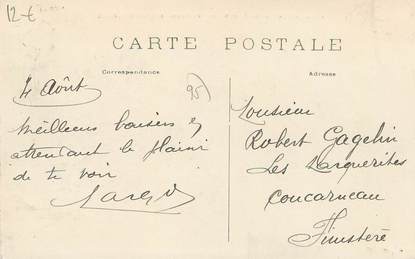 12-€
CARTE POSTALE
Correspondance
Adresse
4 Août
95
Meilleurs baisers en
attendant le plaisir
de te voir
Monsieur
Robert Gagelin
Les Marguerites
Concarneau
Finistère